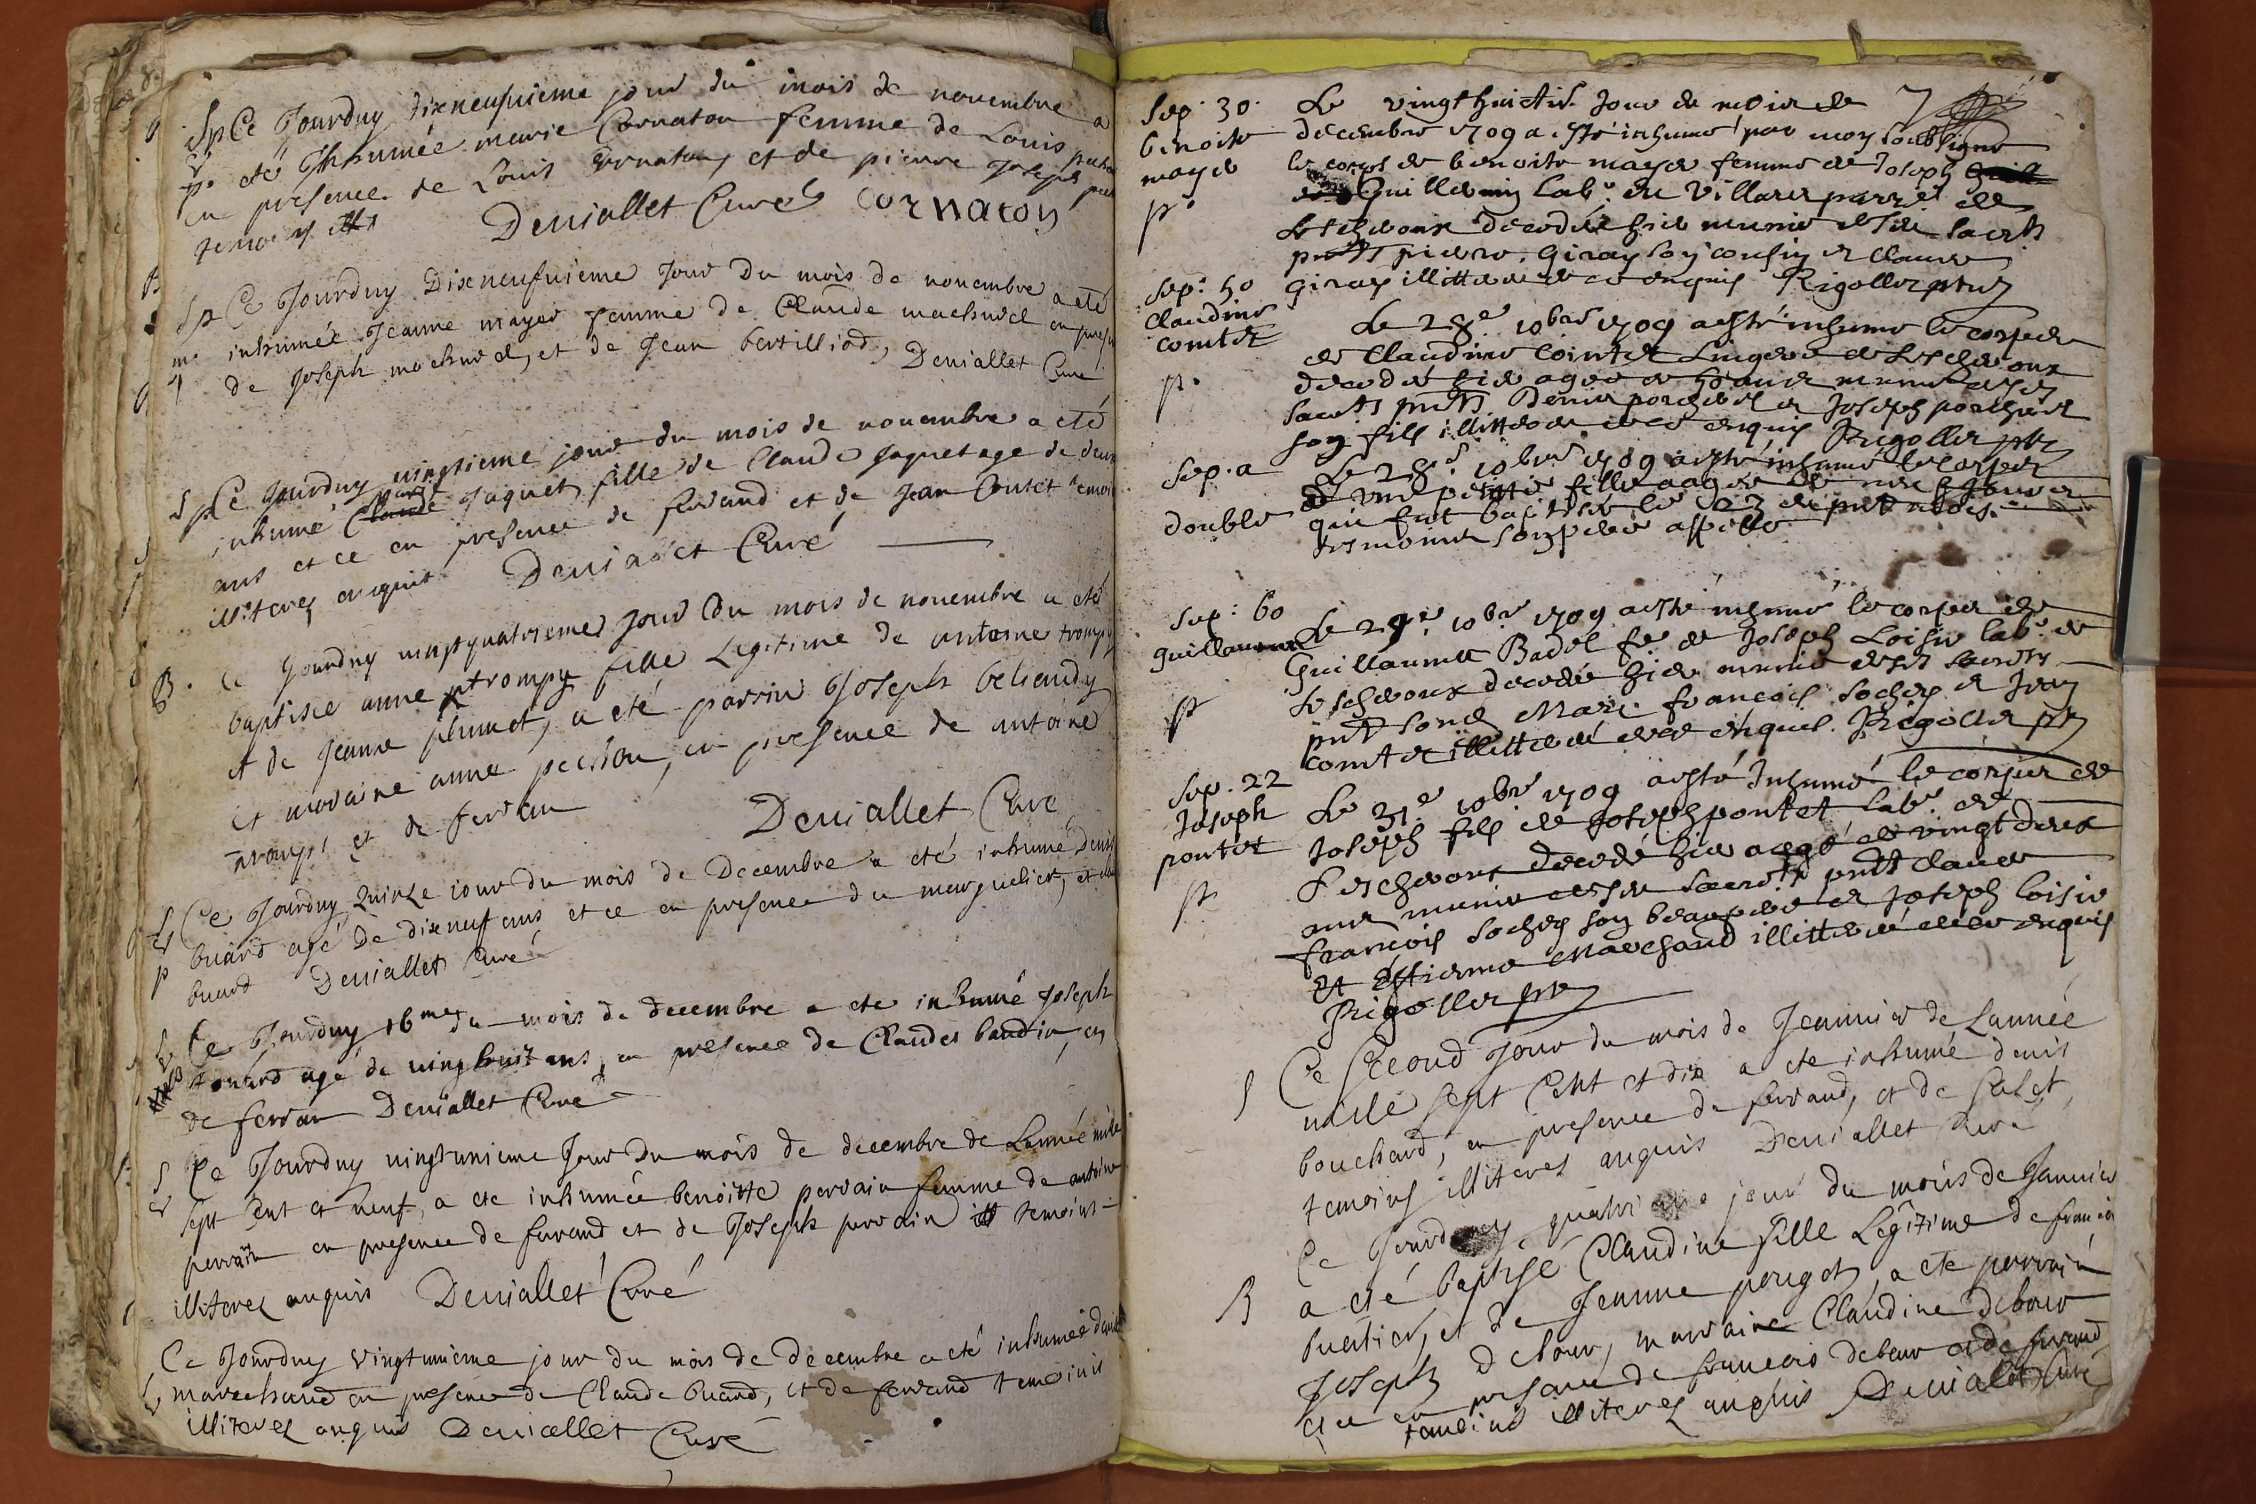 Sp Ce Jourduy dixneufuieme jour du mois de novembre a
été Jnhumée marie Cornaton femme de Louis
en presence de Louis Cornaton, et de pierre Joseph
temoins Deniallet Curé cornaton
Sp Ce Jourduy Dixneufuieme Jour Du mois de novembre a été
inhumée Jeanne mayer femme de Claude machurel en
de Joseph machurel, et de Jean bertilliod, Deniallet Curé
Sp Ce Jourduy uingtieme jour du mois de novembre a eté
inhumé Jaquet fille de Claude Jaquet age de deux
ans et ce en presence de ferrand et de Jean Contet
illiterez enquis Deniallet Curé
B. Ce Jourduy uingtquatrieme Jour Du mois de novembre a eté
baptisée anne trompy fille Legitime de antoine trompy
et de Jeanne plumet, a eté parrin Joseph
et maraine anne, en presence de antoine
trompi et de ferran Deniallet Curé
S Ce Jourduy Quinze iour du mois de Decembre a eté inhumé Denis
p buard agé De dixneuf ans et ce en presence du marguelier, et
buard Deniallet Curé
Ce Jourduy 16me du mois de decembre a ete inhumé Joseph
agé de uinghuit ans, en presence de Claudes baudin, en
de ferran Deniallet Curé
S Ce Jourduy uingtunieme Jour Du mois de decembre de Lannée mille
sept cent et neuf, a ete inhumée benoitte perrain femme de antoine
perrain en presence de ferrand et de Joseph perrain temoins
illiterez anquis Deniallet Curé
Ce Jourduy vingtunieme jour du mois de Decembre a eté inhumée
marechand en presence de Claude buard, et de ferrand temoinis
illiterez anquis Deniallet Curé
Sep. 30. Le vingt huictie. Jour de mois de
benoite decembre 1709 a esté inhumé par moy soubsigne
mayer le corps de benoite mayer femme de Joseph
p. Guillemin lab. du Villard parr. de
Lescheroux decedée hier munie de ses sacrts
pnts pierre giray son cousin et claude
Sep. 50 giray illitteré de ce enquis Rigollet ptre
Claudine Le 28e 10bre 1709 a esté inhumé le corps de
comtet de Claudine Cointet Lingere de Lescheroux
p. decedé hier agée de 50 ans munie de ses
sacrts pnts Denis porcheret et Joseph porcheret
son fils illitteré de ce enquis Rigollet ptre
Sep. a Le 28e 10bre 1709 a esté inhumé le corps
double d'une petite fille aagée de
qui fut baptisée le 23 de pnt mois.
tesmoins son pere appellé
Sep: 60 Le 29e 10bre 1709 a esté inhumé le corps de
guillaume Guillaumette Badel fe. de Joseph Loisie lab. de
p Lescheroux decedée hier munie de ses sacrts
pnts francois Sochon et Jean
comtet illitteré de ce enquis. Rigollet ptre
Sep. 22 Le 31e 10bre 1709 a esté Inhumé le corps de
Joseph Joseph fils de Joseph pontet lab. de
pontet Lescheroux decedé hier aagé de vingt deux
p ans munie de ses sacrts pnts claude
francois Sochon son beaupere et Joseph loisie
et Estienne Marchand illitteré de ce enquis
Rigollet ptre
S Ce second Jour du mois de Jeanuier de Lannée
mille sept Cent et dix a ete inhumé denis
bouchard, en presence de ferrand, et de
temoins illiterez anquis Deniallet Curé
Ce Jourduy quatrieme jour du mois de Januier
B a eté baptisé Claudine fille Legitime de francois
buatier, et de Jeanne pouget, a ete parrain
Joseph debour, marraine Claudine debour
et ce en presence de francois debour et de ferrand
temoins illiterez anquis Deniallet Curé